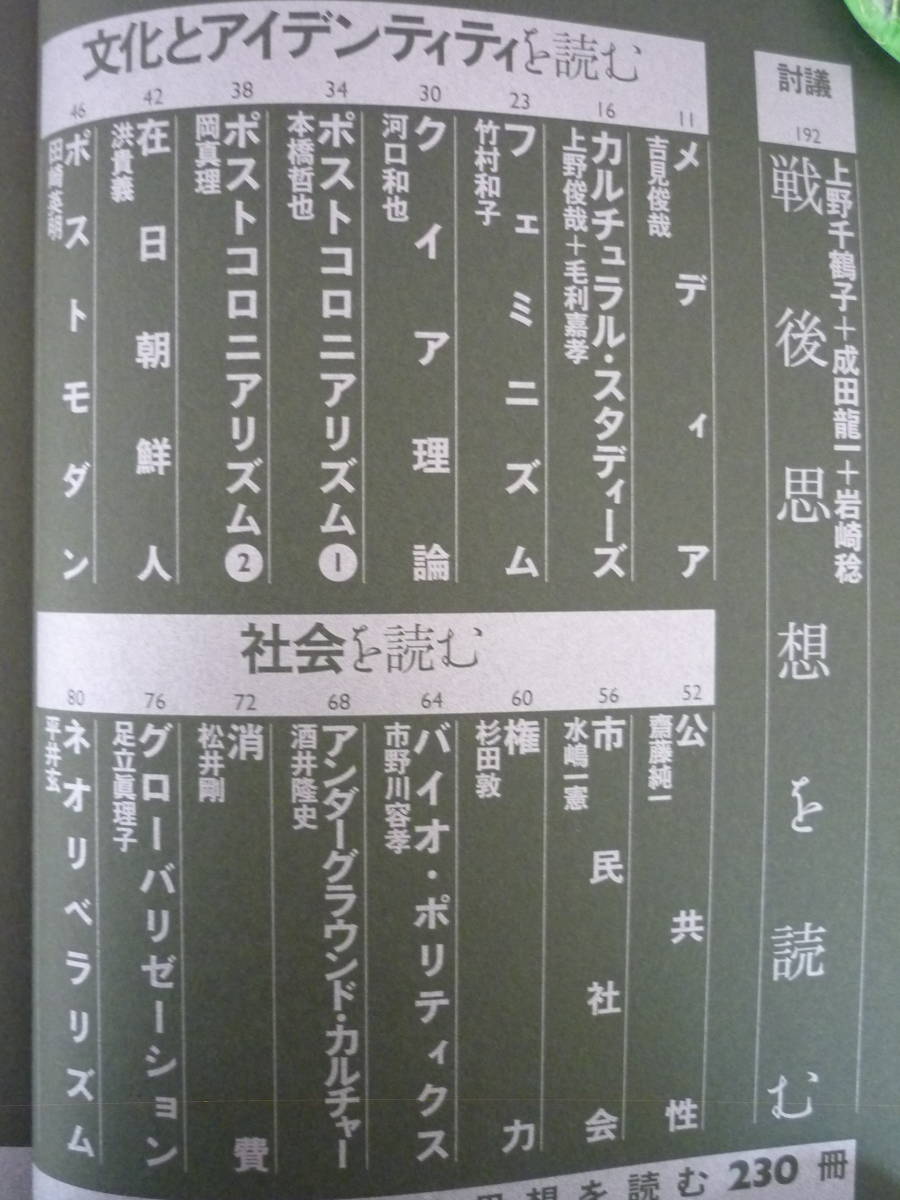 討議
192
上野千鶴子＋成田龍一＋岩崎稔
戦後思想を読む
文化とアイデンティティを読む
11
メディア
吉見俊哉
16
カルチュラル・スタディーズ
上野俊哉＋毛利嘉孝
23
フェミニズム
竹村和子
30
クイア理論
河口和也
34
ポストコロニアリズム❶
本橋哲也
38
ポストコロニアリズム❷
岡真理
42
在日朝鮮人
洪貴義
46
ポストモダン
田崎英明
社会を読む
52
公共性
齋藤純一
56
市民社会
水嶋一憲
60
権力
杉田敦
64
バイオ・ポリティクス
市野川容孝
68
アンダーグラウンド・カルチャー
酒井隆史
72
消費
松井剛
76
グローバリゼーション
足立眞理子
80
ネオリベラリズム
平井玄
思想を読む 230冊